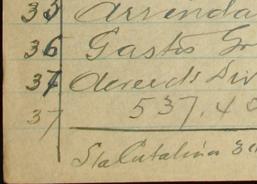 35 Arrenda
36 Gastos Gr
37 Acreeds Div
37 537.40
Sta Catalina 3